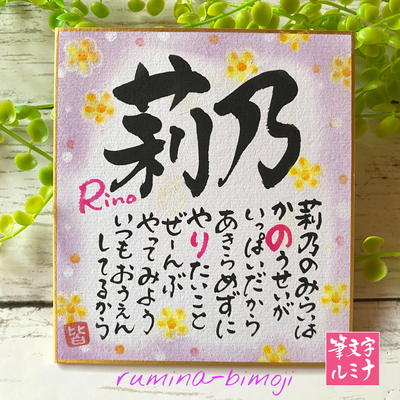 莉乃
Rino
莉乃のみらいは
かのうせいが
いっぱいだから
あきらめずに
やりたいこと
ぜーんぶ
やってみよう
いつもおうえん
してるから
皆
筆文字
ルミナ
rumina-bimoji